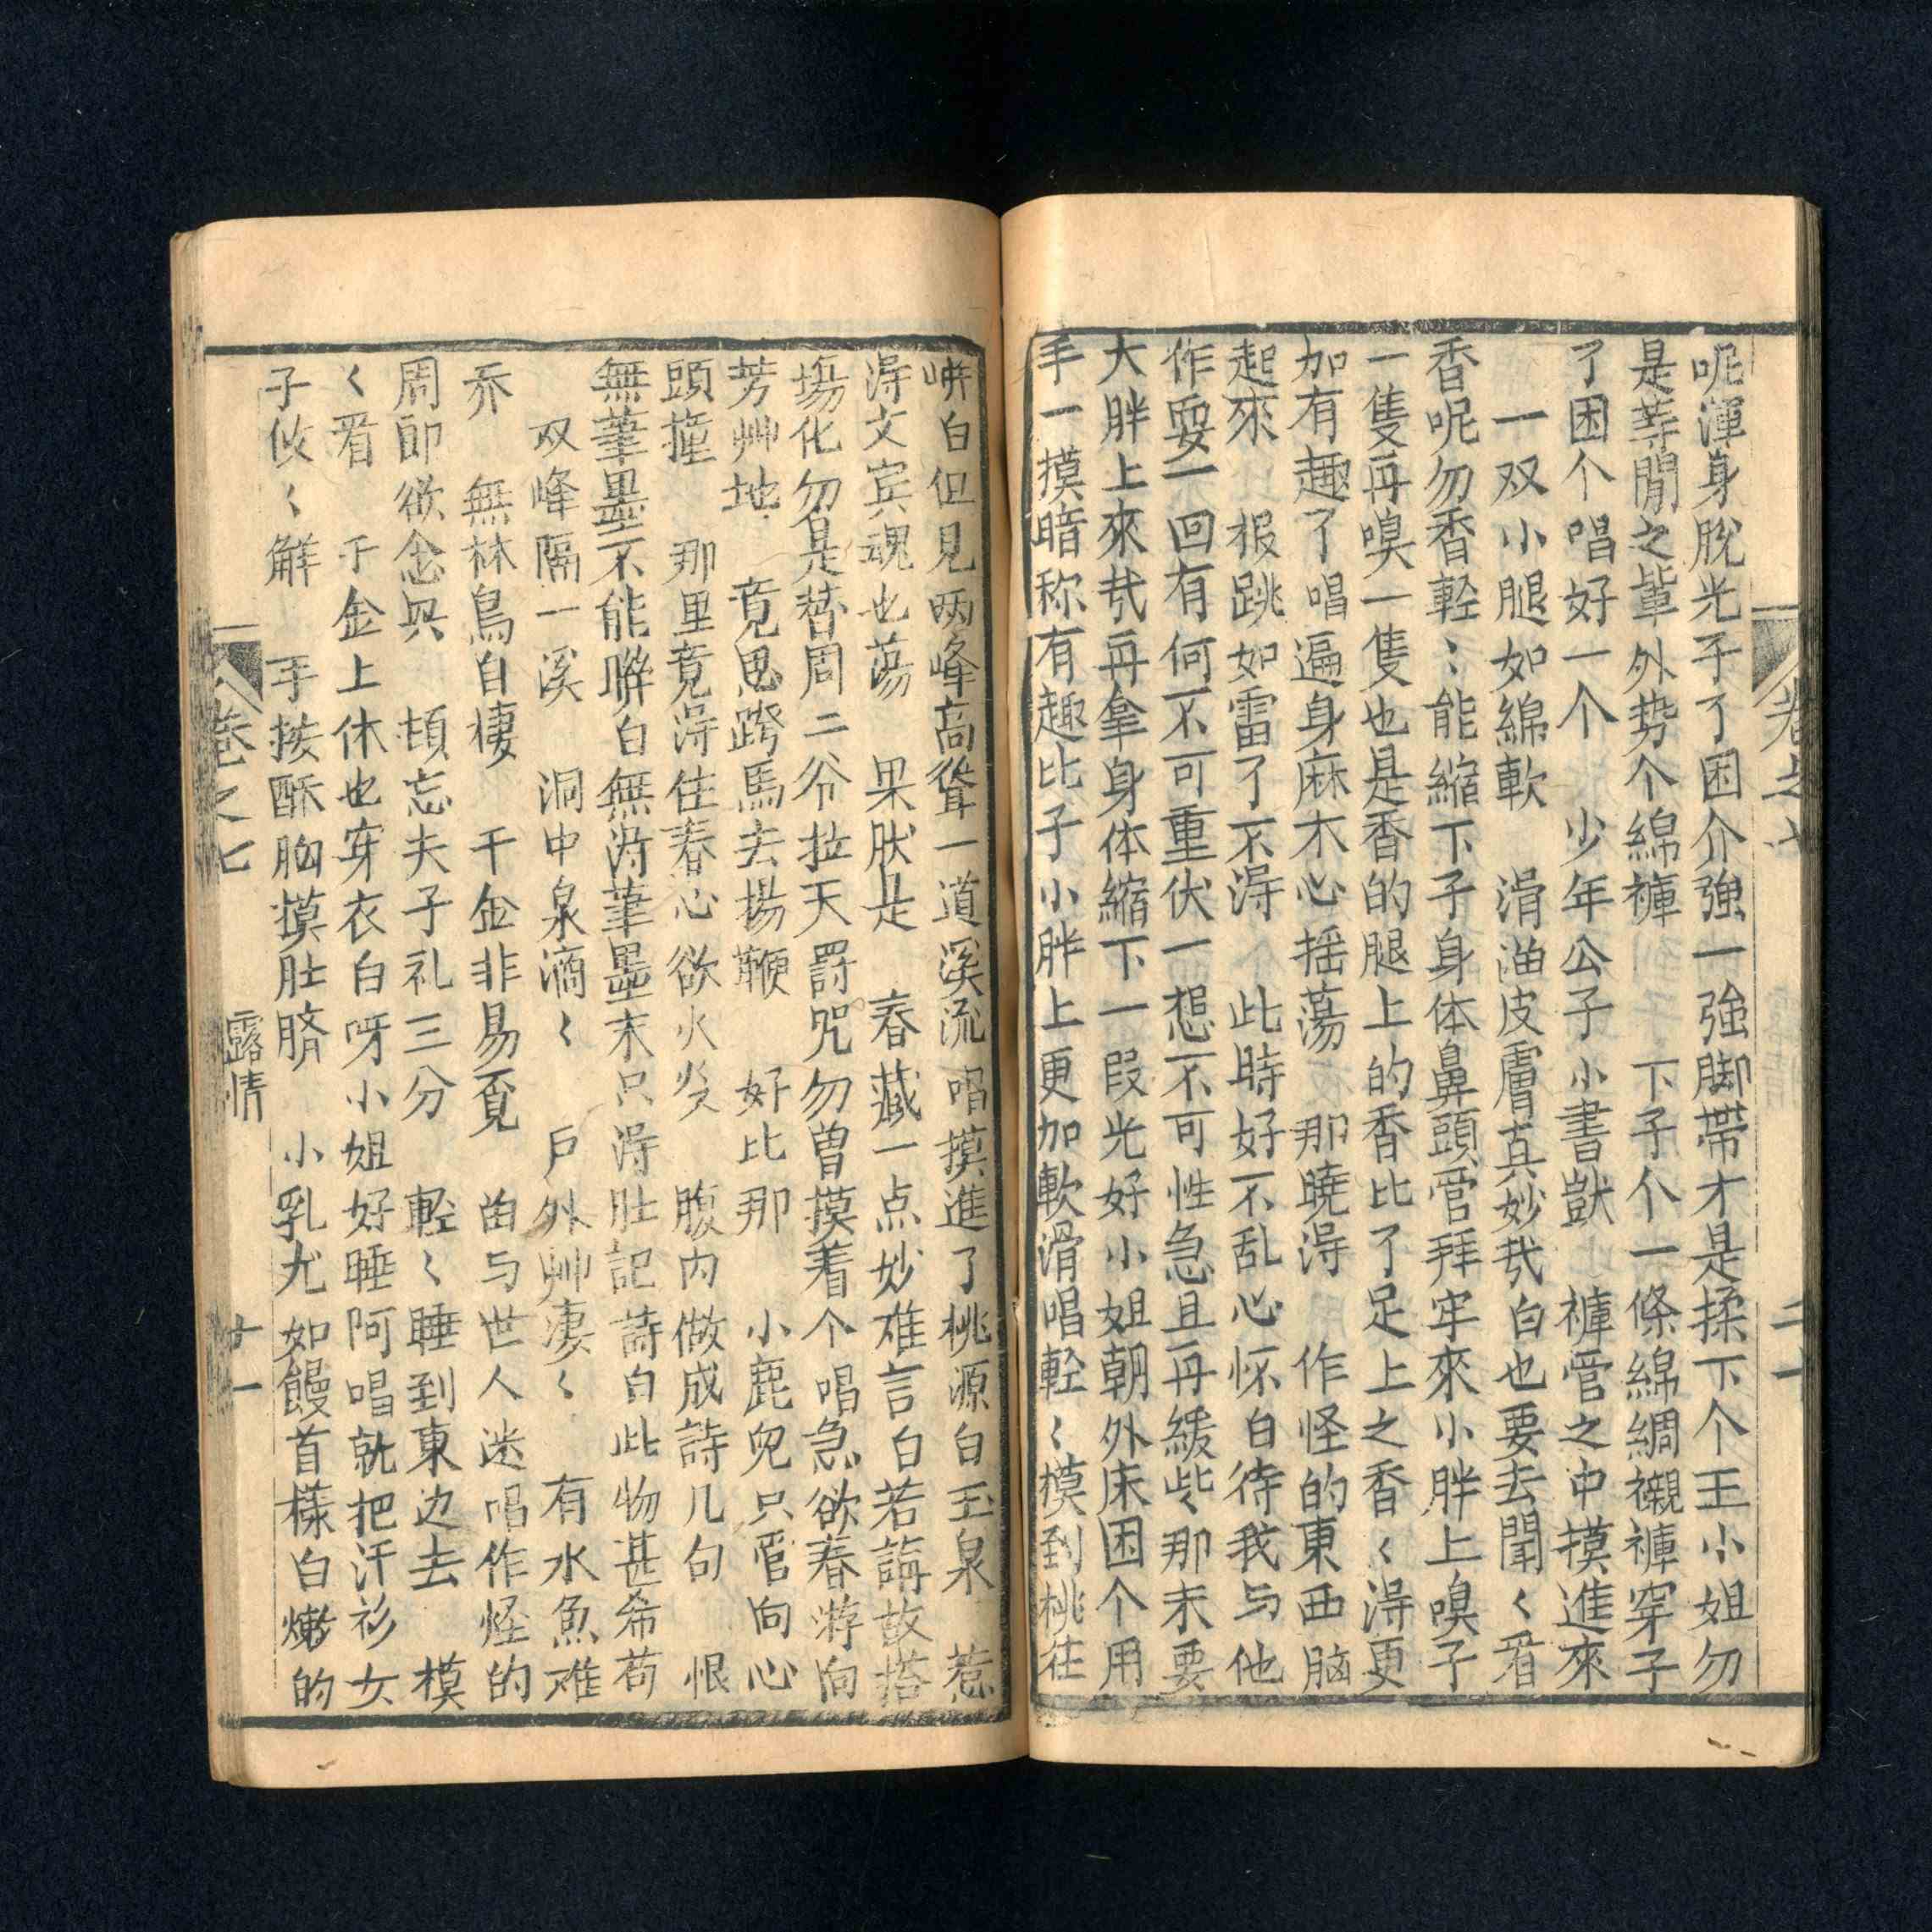 卷之七 二十
呢渾身脫光子了困介強一強脚帶才是揉下个王小姐勿
是荨閒之輩外势个綿褲 下子个一條綿綢襯褲穿子
了困个唱好一个 少年公子小書獃 褲管之中摸進來
一双小腿如綿軟 滑油皮膚真妙㢤白也要去聞〻看
香呢勿香輊〻能縮下子身体鼻頭管拜牢來小胖上嗅子
一隻再嗅一隻也是香的腿上的香比了足上之香〻淂更
加有趣了唱遍身麻木心揺蕩 那曉淂 作怪的東西脑
起來 报跳如雷了不淂 此時好不乱心怀白待我与他
作耍一回有何不可重伏一想不可性急且再緩些那末要
大胖上來㢤再拿身体縮下一叚光好小姐朝外床困个用
手一摸暗称有趣比子小胖上更加軟滑唱輊〻摸到桃
白但見两峰高聳一道溪流唱摸進了桃源白玉泉 惹
淂文宾魂也蕩 果肰是 春藏一点妙难言白若論故搭
塲化勿是替周二爷拉天罸咒勿曾摸着个唱急欲春游向
芳艸地 竟思跨馬去揚鞭 好比那 小鹿兒只管向心
頭撞 那里竟淂住春心欲火炎 腹内做成詩几句 恨
無筆墨不能聨白無淂筆墨末只淂肚記詩白此物甚希苟
双峰隔一溪 洞中泉滴〻 戶外艸凄〻 有水魚难
养 無林鳥自棲 千金非易覔 苗与世人迷唱作怪的
周郎欲念兴 頓忘夫子礼三分 輊〻睡到東边去 模
〻看 千金上休也穿衣白呀小姐好睡阿唱就把汗衫女
子攸〻解 手按酥胸摸肚脐 小乳尤如饅首樣白嫩的
卷之七 露情 廿一